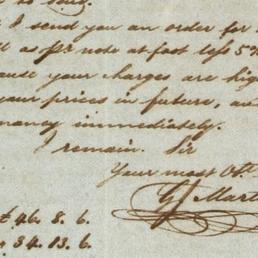 I send you an order for
as pr note at foot less 5%
your charges are hig
your prices in future, an
money immediately.
I remain. Sir
Your most Obt
G Mart
£ 46. 8. 6.
34. 13. 6.